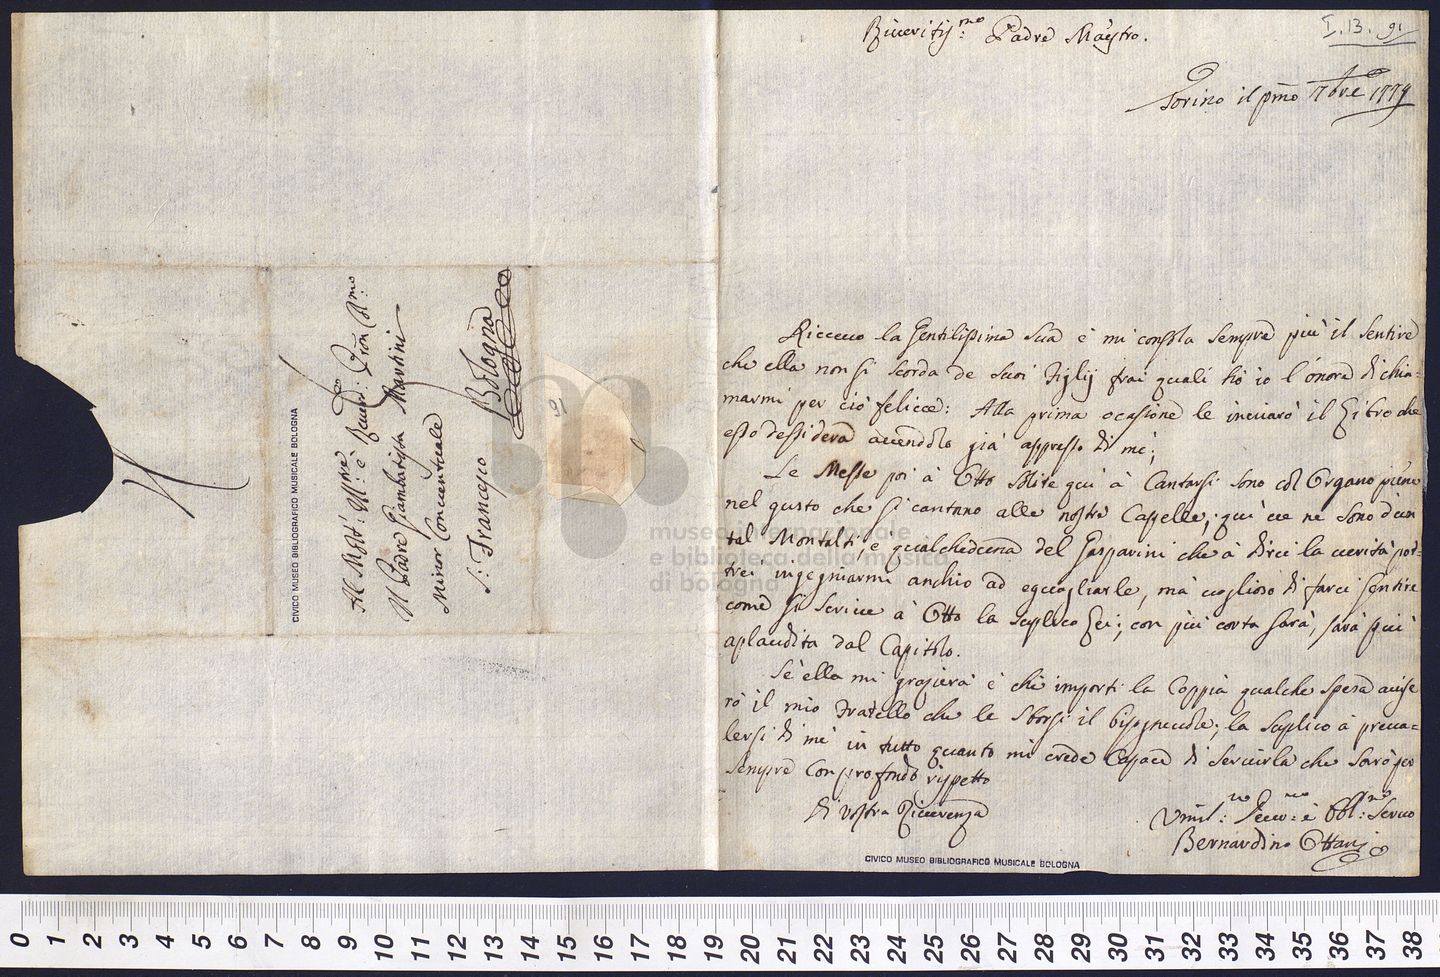 I. 13. 91
Riveritis.mo Padre Maestro.
Torino il p̄mo 7bre 1779
Riccevo la Gentilissima Sua è mi consola sempre più il sentire
che ella non si scorda de suoi Figlij frai quali hò io l'onore di chia-
marmi per ciò felicce: Alla prima ocasione le inviarò il Libro che
esso dessidera avendolo già appresso di mè;
Le Messe poi à Otto solite qui à Cantarsi sono col Organo pieno
nel gusto che si cantano alle nostre Cappelle, qui ve ne sono d'un
tal Montalti, è qualcheduna del Gasparini che à dirci la verità pot-
trei ingegniarmi anchio ad eguagliarle, mà voglioso di farci sentire
come si scrive à Otto la suplico Lei; con più corta sarà, sarà più
aplaudita dal Capitolo.
Sè ella mi grazierà è chè importi la Coppia qualche spesa avise
rò il mio Fratello che le sborsi il bisognevole; la suplico à preva-
lersi di mè in tutto quanto mi crede Capace di servirla che sarò per
sempre con profondo rispetto
Di vostra Riverenza
Umil.mo Devo.mo è Obl.mo Servo
Bernardino Ottani
CIVICO MUSEO BIBLIOGRAFICO MUSICALE BOLOGNA
Al Molt'
Il Padre Giambatista Martini
Minor Conventuale
S: Francesco
Bologna
CIVICO MUSEO BIBLIOGRAFICO MUSICALE BOLOGNA
91
museo internazionale
e biblioteca della musica
di bologna
0 1 2 3 4 5 6 7 8 9 10 11 12 13 14 15 16 17 18 19 20 21 22 23 24 25 26 27 28 29 30 31 32 33 34 35 36 37 38